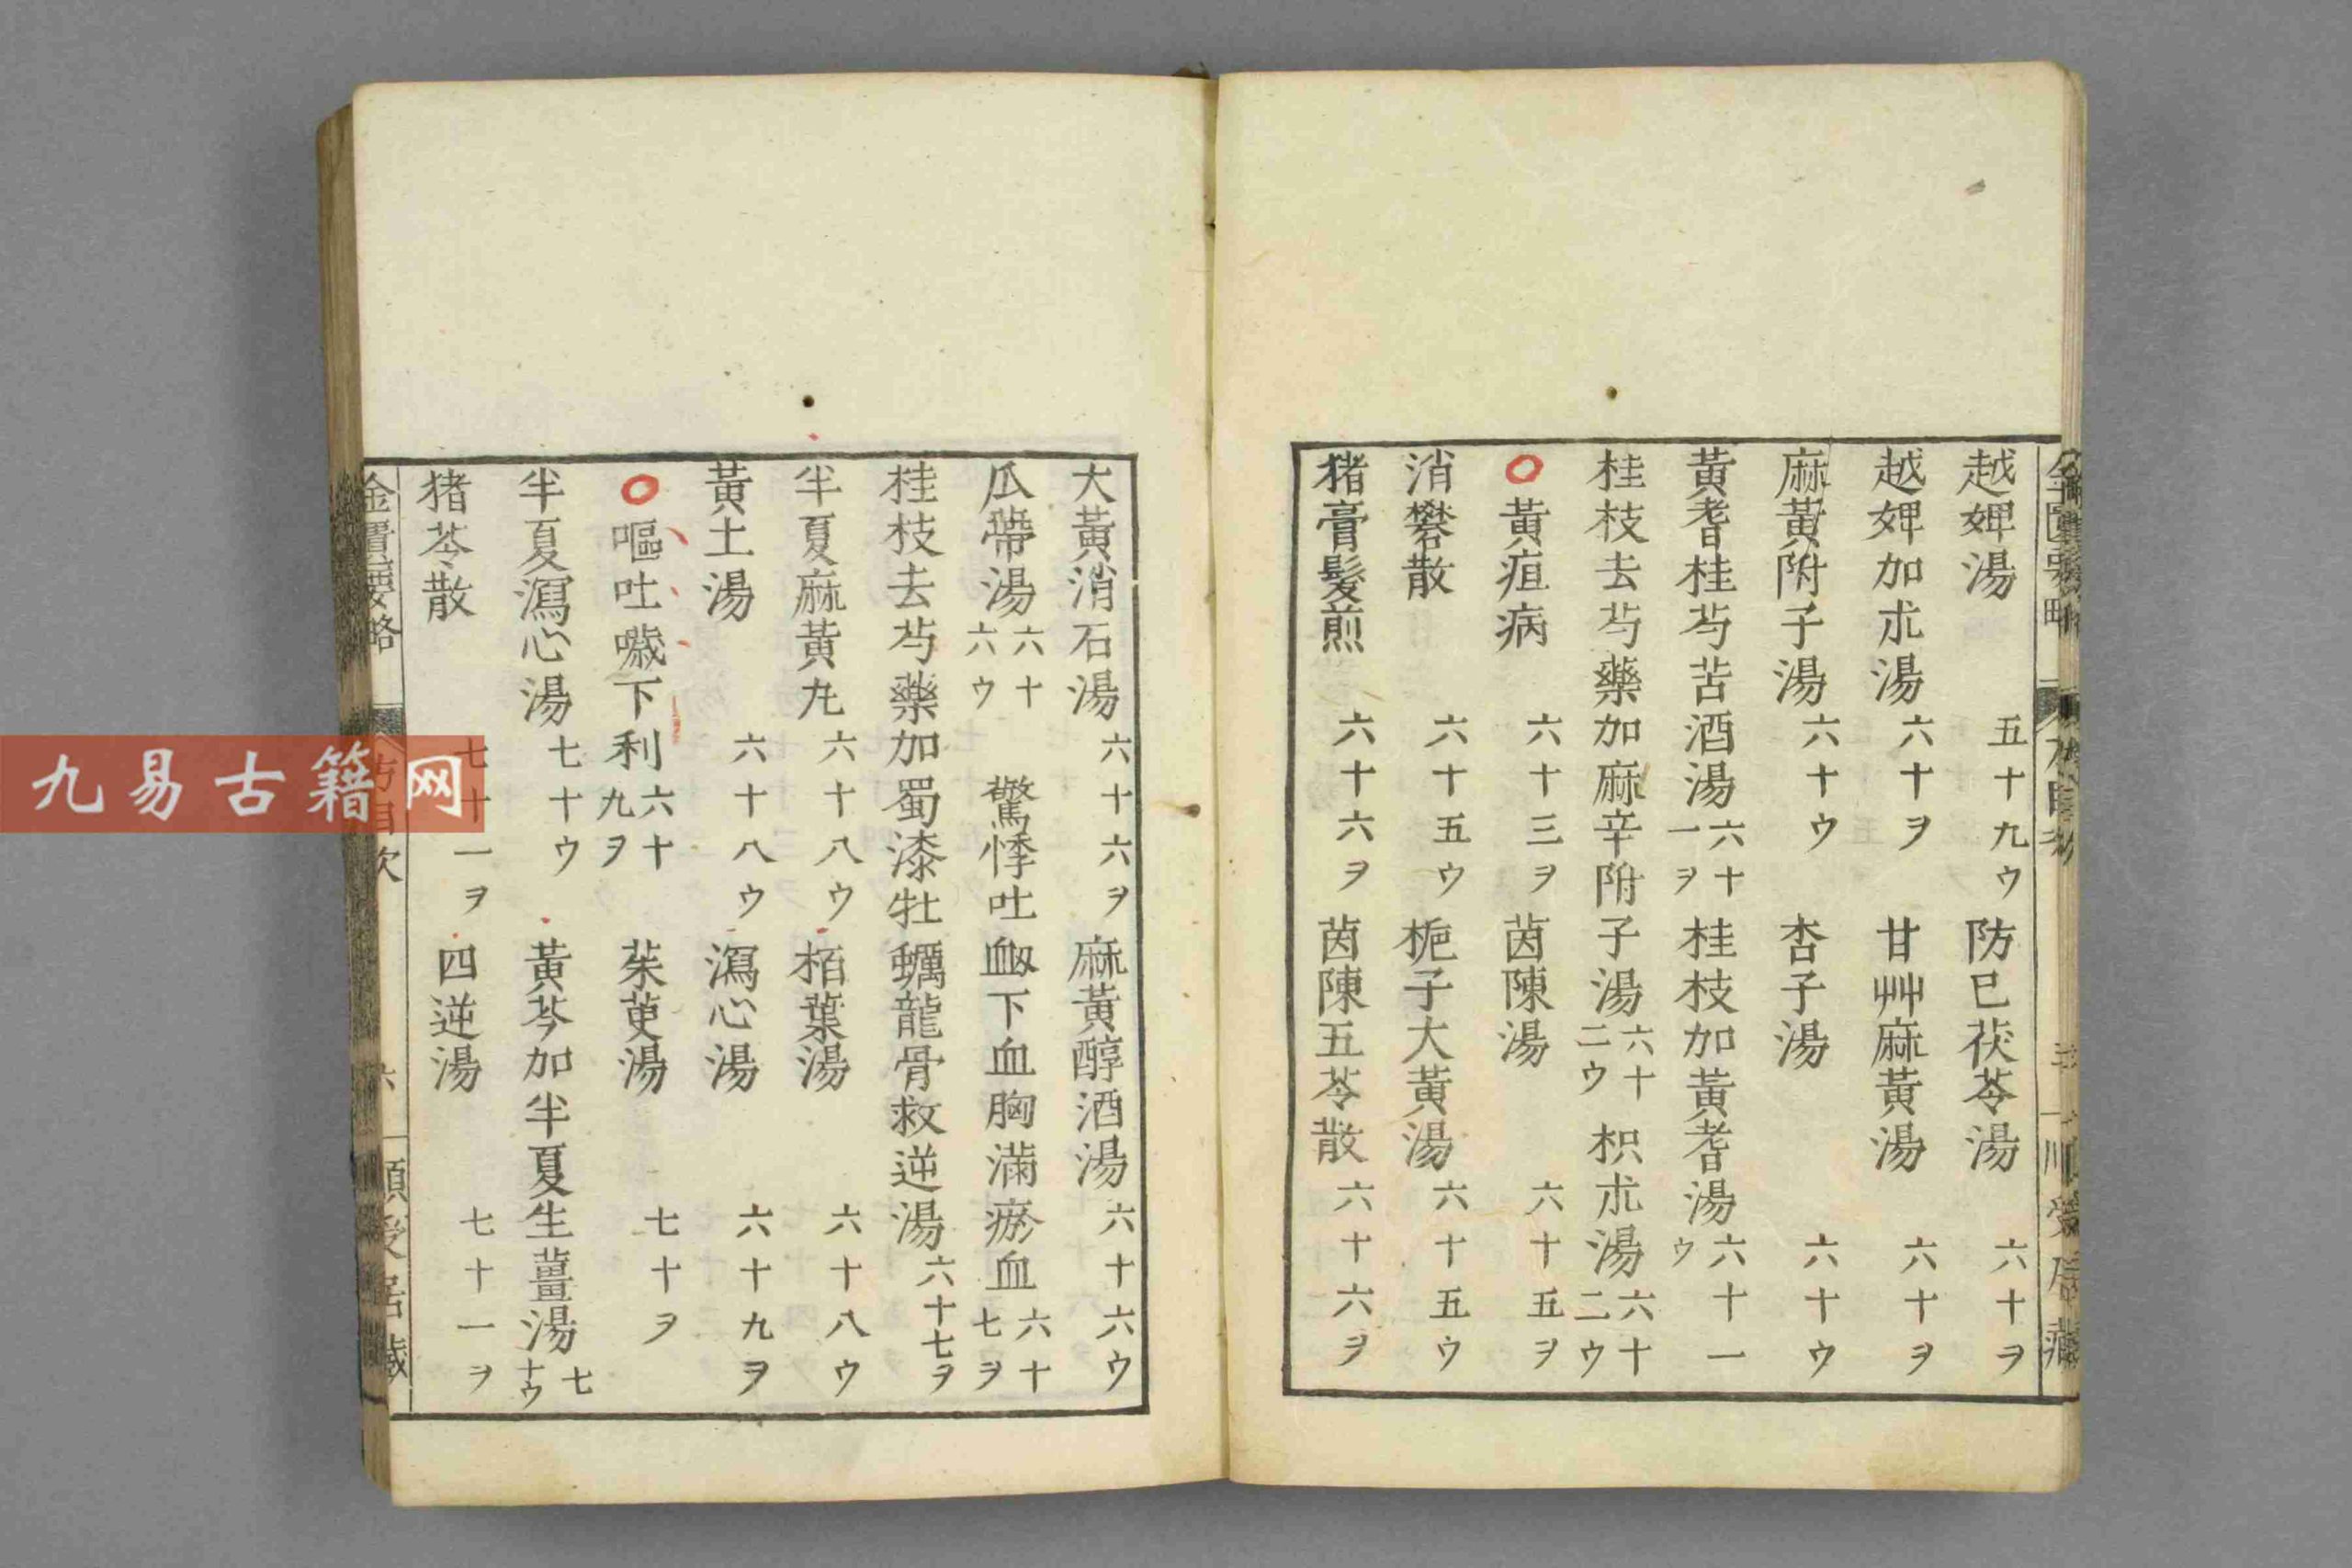 越婢湯 五十九ウ 防已茯苓湯 六十ヲ
越婢加朮湯 六十ヲ 甘艸麻黃湯 六十ヲ
麻黃附子湯 六十ウ 杏子湯 六十ウ
黃耆桂芍苦酒湯 六十一ヲ 桂枝加黃耆湯 六十一ウ
桂枝去芍藥加麻辛附子湯 六十二ウ 枳朮湯 六十二ウ
黃疸病 六十三ヲ 茵陳湯 六十五ヲ
消礬散 六十五ウ 梔子大黃湯 六十五ウ
猪膏髮煎 六十六ヲ 茵陳五苓散 六十六ヲ
大黃消石湯 六十六ヲ 麻黃醇酒湯 六十六ウ
瓜蔕湯 六十六ウ 驚悸吐衂下血胸滿瘀血 六十七ヲ
桂枝去芍藥加蜀漆牡蠣龍骨救逆湯 六十七ヲ
半夏麻黃丸 六十八ウ 栢葉湯 六十八ウ
黃土湯 六十八ウ 瀉心湯 六十九ヲ
嘔吐噦下利 六十九ヲ 茱萸湯 七十ヲ
半夏瀉心湯 七十ウ 黃芩加半夏生薑湯 七十ウ
猪苓散 七十一ヲ 四逆湯 七十一ヲ
金匱要略 方目次 六 順受居藏
九易古籍网